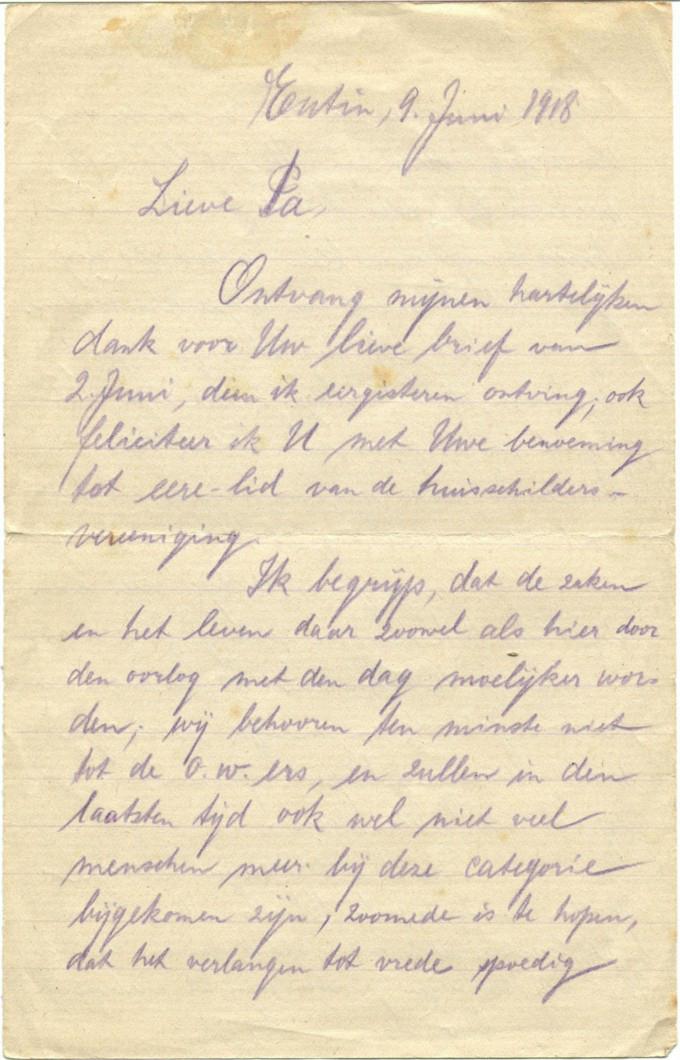 Eutin, 9. Juni 1918
Lieve Pa,
Ontvang mijnen hartelijken
dank voor Uw lieve brief van
2. Juni, dien ik eergisteren ontving; ook
feliciteer ik U met Uwe benoeming
tot eere-lid van de huisschilders-
vereeniging.
Ik begrijp, dat de zaken
en het leven daar zoowel als hier door
den oorlog met den dag moelijker wor-
den; wij behooren ten minste niet
tot de O.W.ers, en zullen in den
laatsten tijd ook wel niet veel
menschen meer bij deze categorie
bijgekomen zijn; zoomede is te hopen,
dat het verlangen tot vrede spoedig